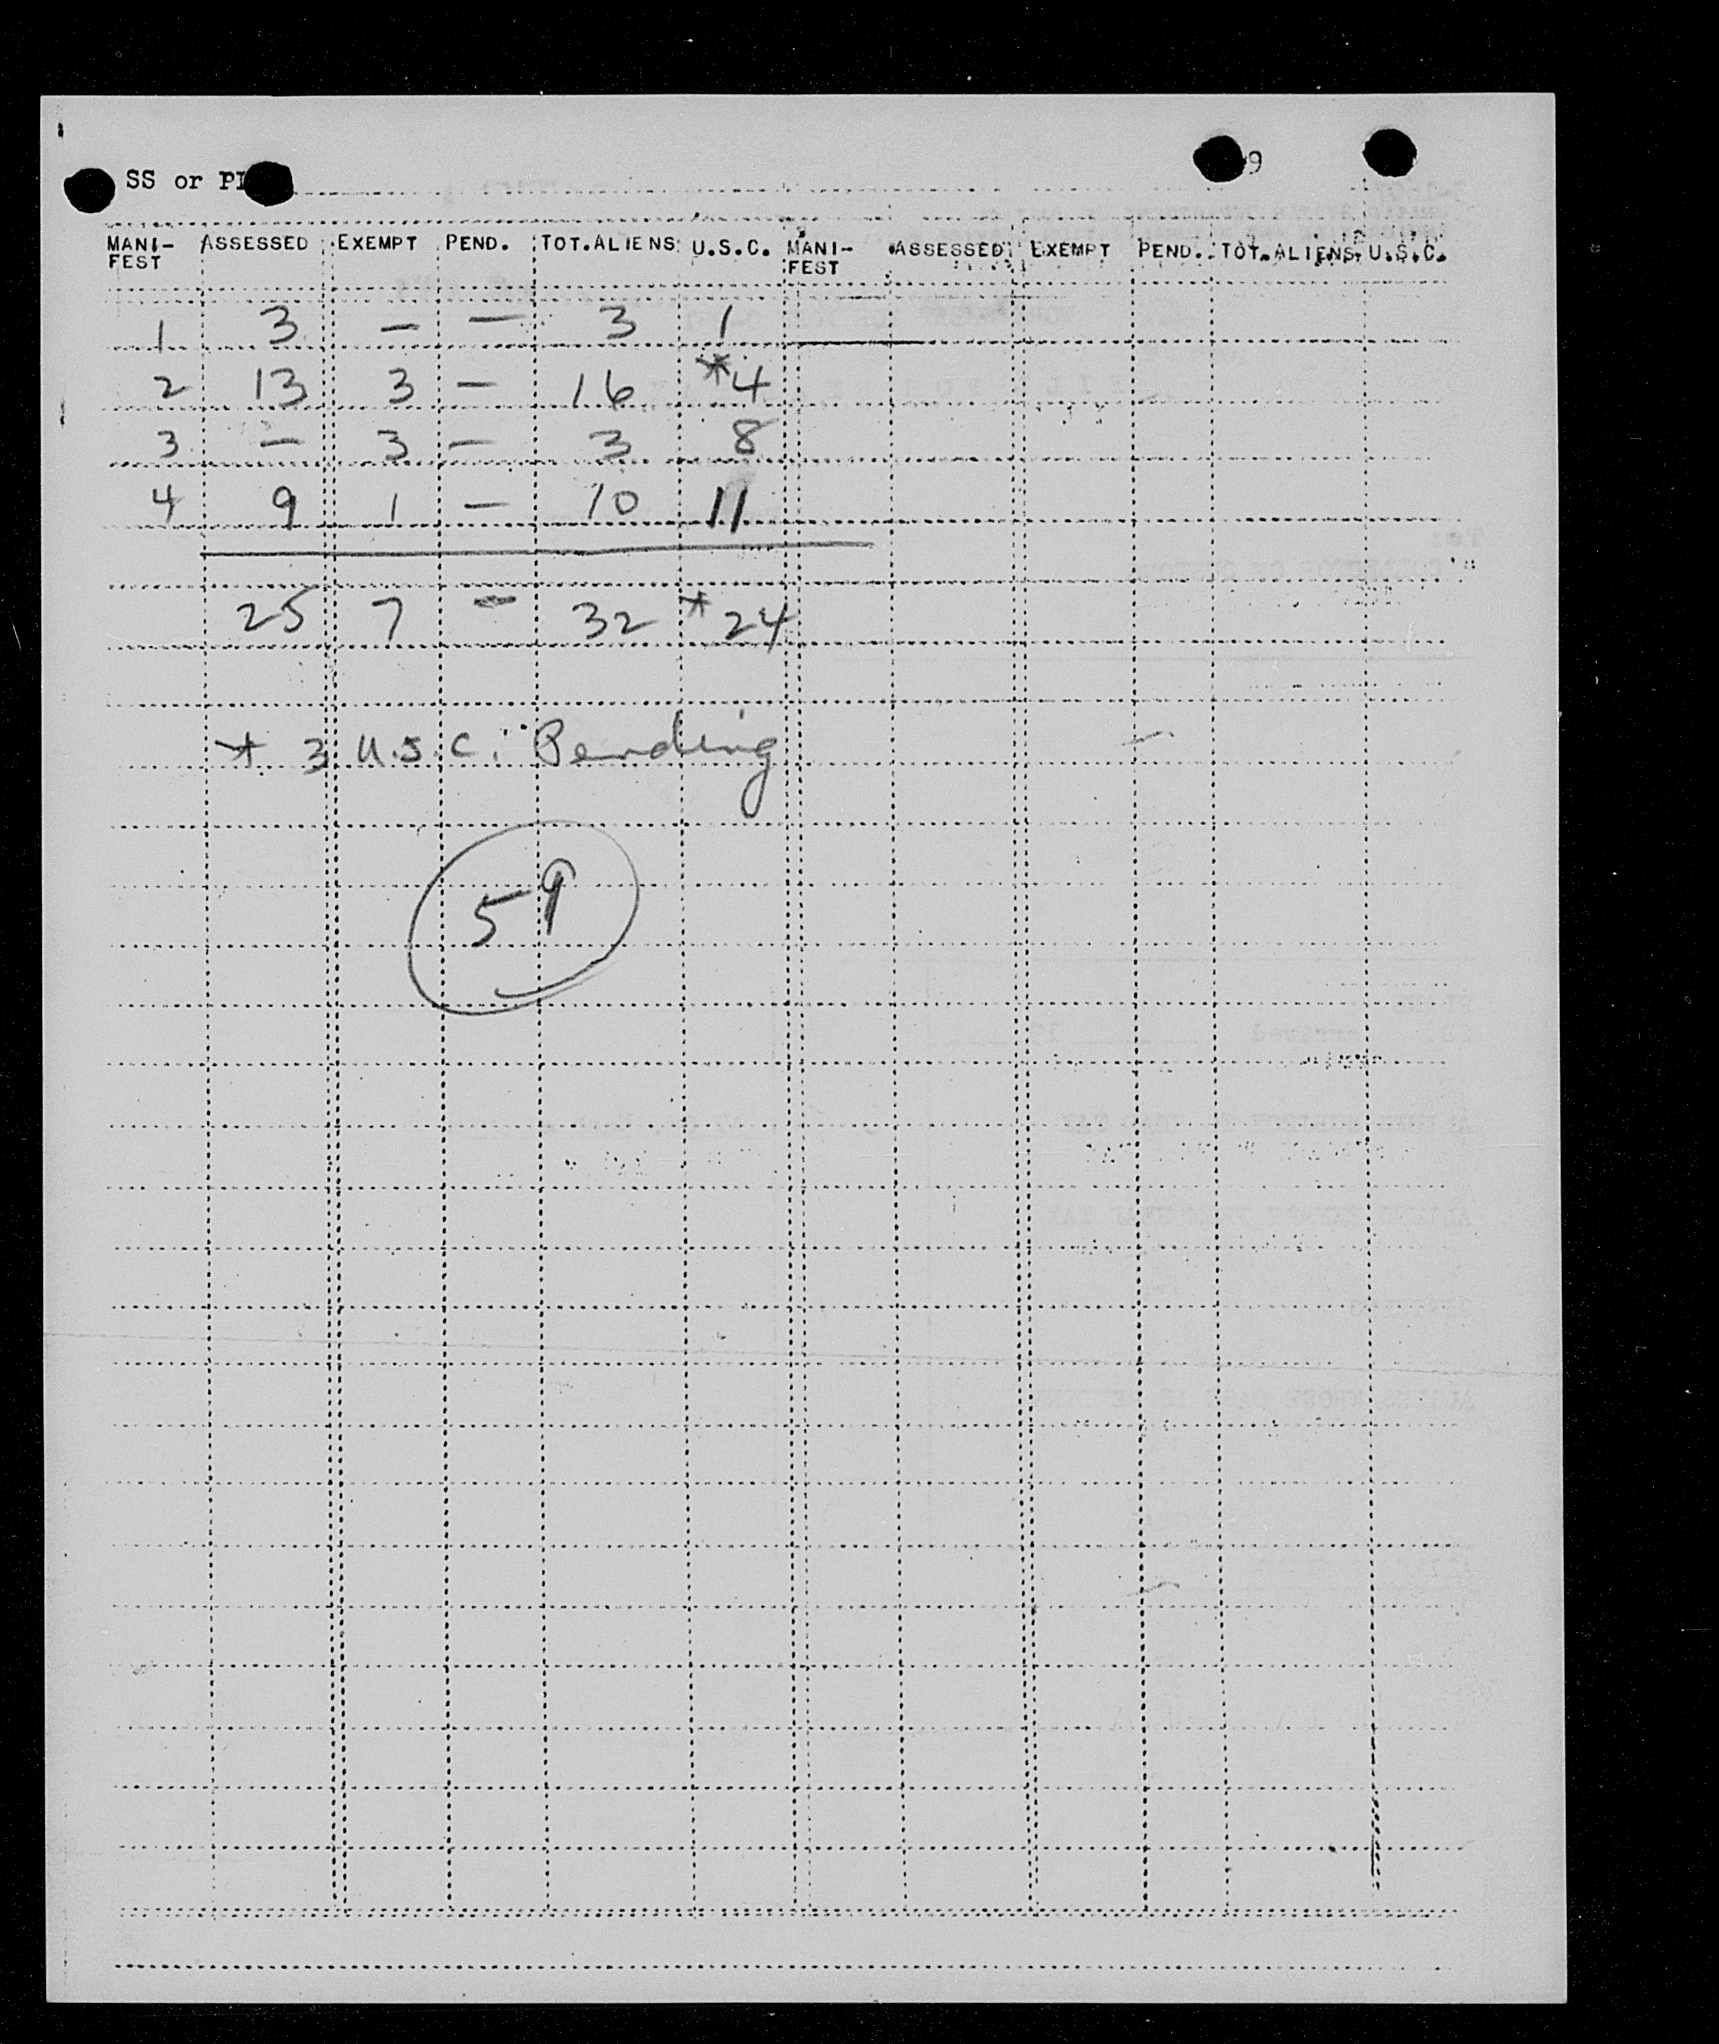 SS or
9
MANI-FEST ASSESSED EXEMPT PEND. TOT.ALIENS U.S.C. MANI-FEST ASSESSED EXEMPT PEND. TOT.ALIENS U.S.C.
1 3 — — 3 1
2 13 3 — 16 *4
3 — 3 — 3 8
4 9 1 — 10 11
25 7 — 32 *24
* 3 U.S.C. Pending
59